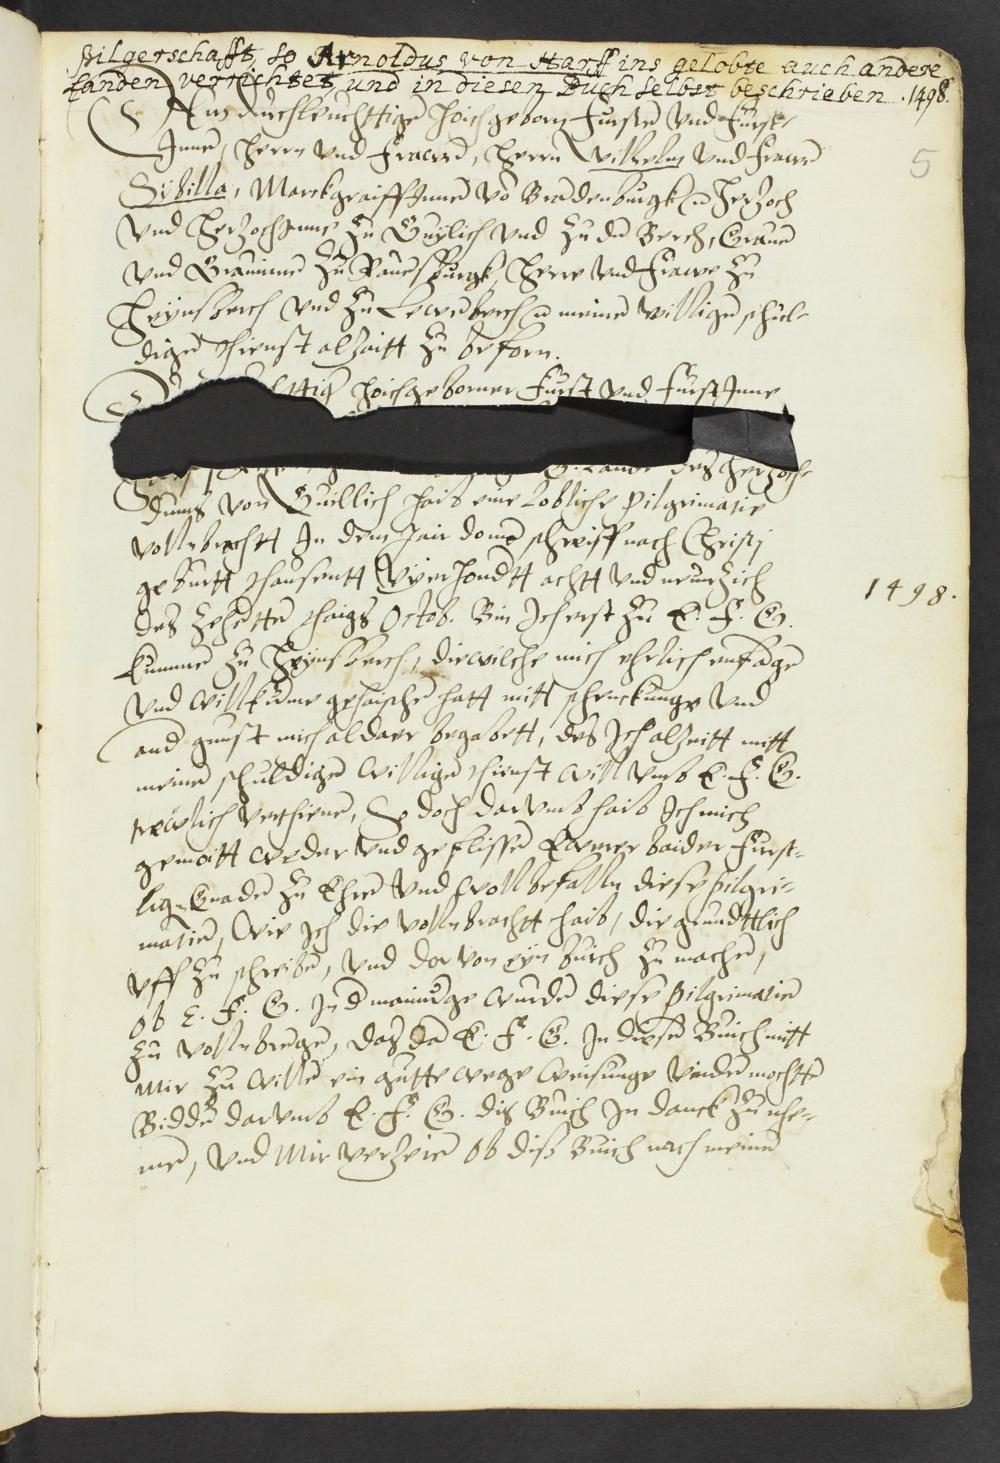 Pilgerschafft, so Arnoldus von Harff ins gelobte auch andere
Landen verrichtet, und in diesen Buch selbst beschrieben .1498.
5
durchleuchttige hoichgeborn Fursten und Furst
Inne, Herrn und Frawen, Herrn Wilhelm und Frawen
Sibilla, Marckgraiffinne vo Bradenburgk Hertzoch
und Hertzochinne zu Guylich und zu de Berch, Grave
und Gravinne zu Ravensburgk, Herre und Frawe zu
Heynsberch und zu Lewenberch meine willige schul-
dige thienst altzaitt zu beforn.
hoichgeborner Furst und Furstinne
Lande des Hertzoch-
dums von Guillich hab eine lobliche Pilgrimatie
vollnbracht In dem Jair doma schreiff nach Christi
geburtt thausentt vyerhondtt achtt und neuntzich
des zehentte thaigs Octob. Bin Ich erst zu E. F. G.
kumme zu Heynsberch, diewilche mich ehrlich enfage
und willkume geheische hatt mitt schenckunge und
and gunst mich aldaer begabett, des Ich altzeitt mitt
meine schuldige willige thienst will umb E. F. G.
trewlich verthiene, So doch darumb hab Ich mich
gemoitt weder und geflisse Ewerer baider Furst-
lig Gnade zu Ehre und wollbefalln diese Pilgri-
matie, wie Ich die vollnbracht hab, die grundtlich
uff zu schreibe, und dor von eyn buich zu mache,
ob E. F. G. In d mainunge wurde diese Pilgrimatie
zu vollnbrenge, das da E. F. G. In diese Buich mitt
mir zu wille ein gutte wege weisunge vinde mochtte
Bidde darumb E. F. G. dis Buich In danck zu nhe-
me, und mir vertzeie ob diss Buich nach meine
1498.